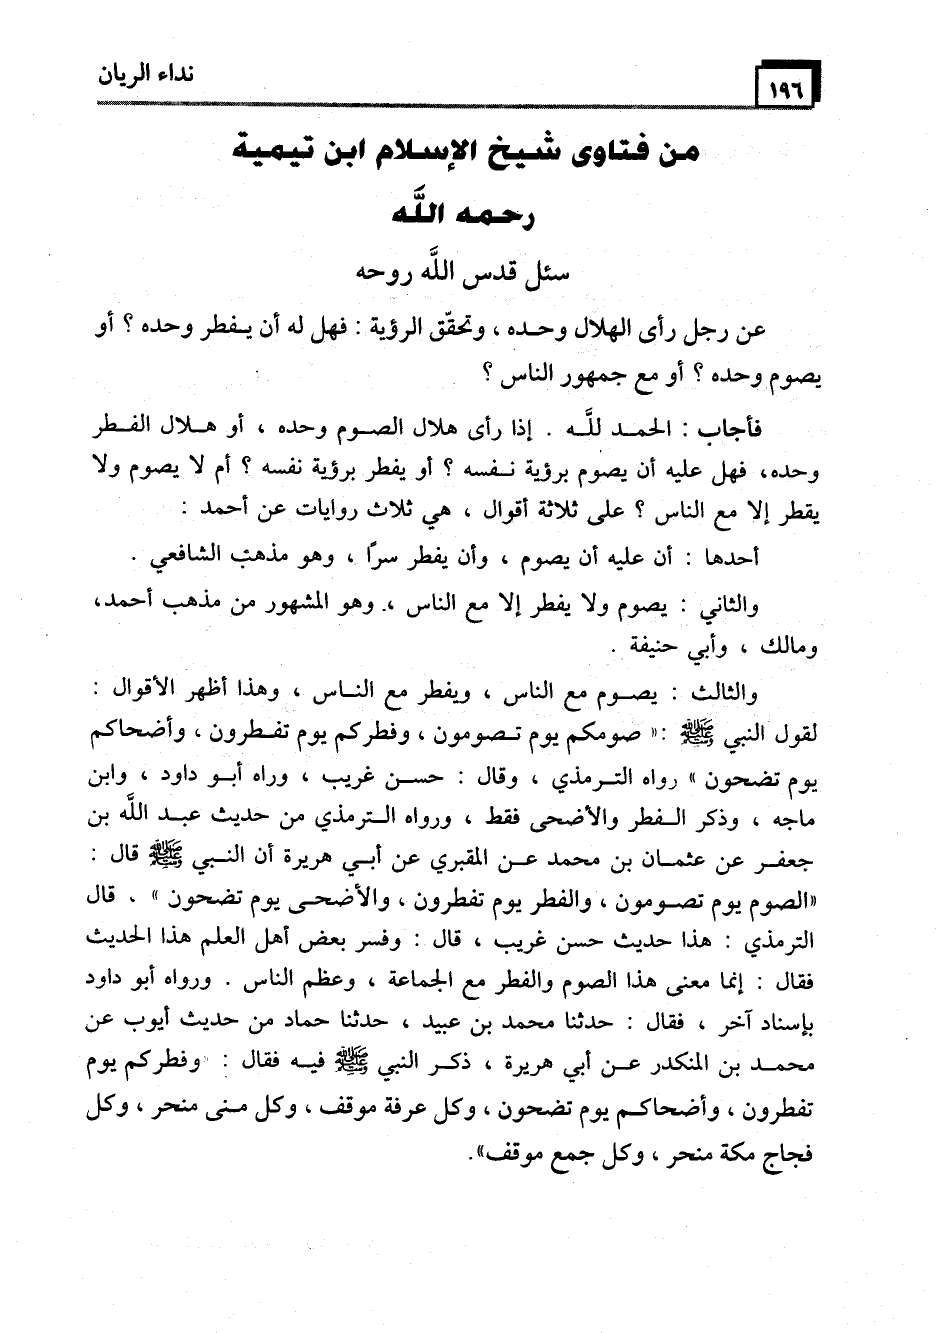 ١٩٦ نداء الريان
من فتاوى شيخ الإسلام ابن تيمية
رحمه اللَّه
سئل قدس اللَّه روحه
عن رجل رأى الهلال وحده ، وتحقّق الرؤية : فهل له أن يفطر وحده ؟ أو
يصوم وحده ؟ أو مع جمهور الناس ؟
فأجاب : الحمد للَّه . إذا رأى هلال الصوم وحده ، أو هلال الفطر
وحده، فهل عليه أن يصوم برؤية نفسه ؟ أو يفطر برؤية نفسه ؟ أم لا يصوم ولا
يقطر إلا مع الناس ؟ على ثلاثة أقوال ، هي ثلاث روايات عن أحمد :
أحدها : أن عليه أن يصوم ، وأن يفطر سرًا ، وهو مذهب الشافعي .
والثاني : يصوم ولا يفطر إلا مع الناس ، وهو المشهور من مذهب أحمد،
ومالك ، وأبي حنيفة .
والثالث : يصوم مع الناس ، ويفطر مع الناس ، وهذا أظهر الأقوال :
لقول النبي ﷺ :« صومكم يوم تصومون ، وفطركم يوم تفطرون ، وأضحاكم
يوم تضحون » رواه الترمذي ، وقال : حسن غريب ، وراه أبو داود ، وابن
ماجه ، وذكر الفطر والأضحى فقط ، ورواه الترمذي من حديث عبد الله بن
جعفر عن عثمان بن محمد عن المقبري عن أبي هريرة أن النبي ﷺ قال :
«الصوم يوم تصومون ، والفطر يوم تفطرون ، والأضحى يوم تضحون » . قال
الترمذي : هذا حديث حسن غريب ، قال : وفسر بعض أهل العلم هذا الحديث
فقال : إنما معنى هذا الصوم والفطر مع الجماعة ، وعظم الناس . ورواه أبو داود
بإسناد آخر ، فقال : حدثنا محمد بن عبيد ، حدثنا حماد من حديث أيوب عن
محمد بن المنكدر عن أبي هريرة ، ذكر النبي ﷺ فيه فقال : «وفطركم يوم
تفطرون ، وأضحاكم يوم تضحون ، وكل عرفة موقف ، وكل منى منحر ، وكل
فجاج مكة منحر ، وكل جمع موقف».